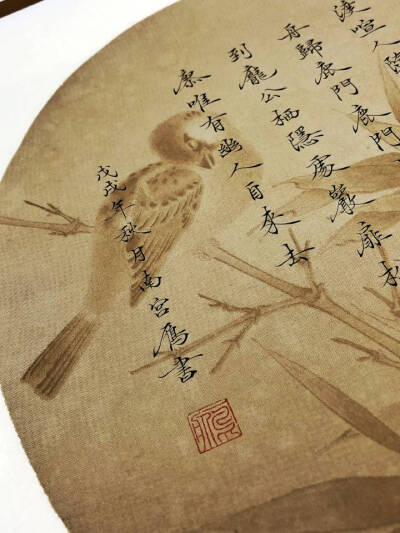 渡喧人隨
舟歸鹿門鹿門
到龐公栖隱處巖扉松
寥唯有幽人自來去
戊戌年秋月南宮鴈書